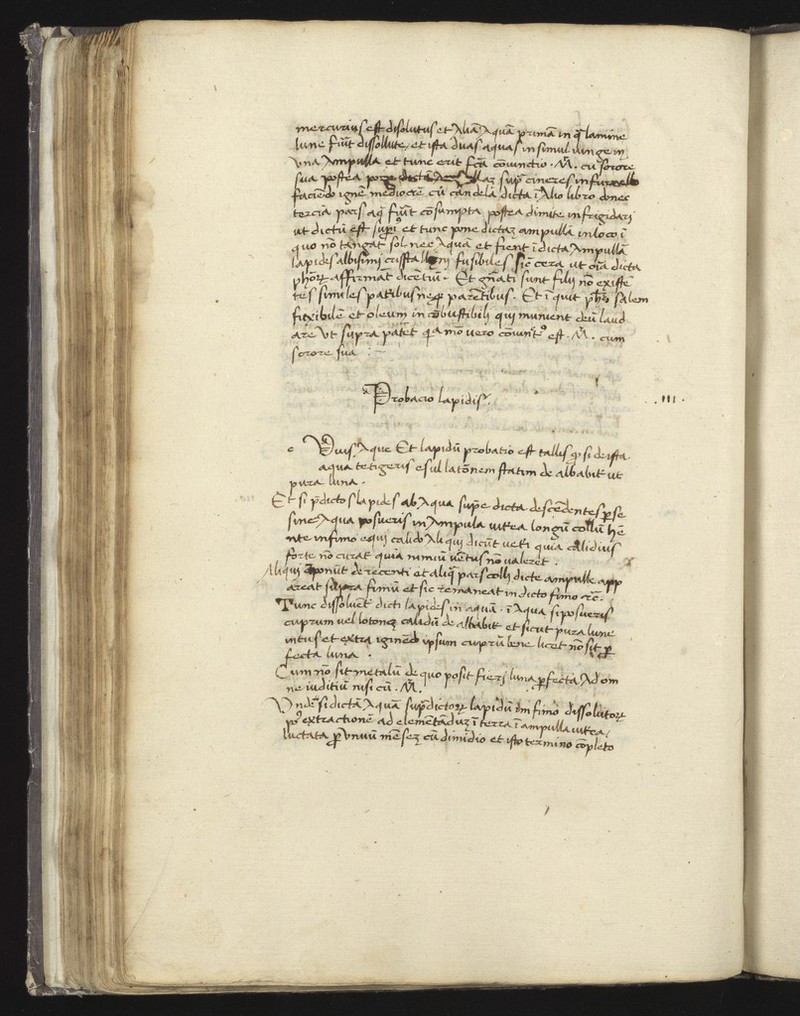 mercurius est disolutus et aliā Aquā primā in q̄ lamine
lune fiūt dissolute, et ista duas aquas in simul iunge in
vna Ampulla et tunc erit fcā coniunctio . M̄. cū sorore
sua postea pone dictā sup̄ cineres in furnello
faciēdo ignē mediocrē cū candela dicta ī Alio libro donec
tercia pars aq̄ fiūt cōsumpta postea dimite infrigidari
ut dictū est sup̄ et tunc pone dictaȝ ampullā in loco ī
quo nō tangat sol nec Aquā et fient ī dicta Ampullā
lapides albisimj cristallinj fusibiles sic cera ut oīa dicta
ph̄oꝝ affirmāt dicētiū . Et gn̄ati sunt filij nō existē
tes similes patribus neqȝ parētibus . Et ī quit ph̄s salem
fixibilē et oleum in cōbustibilj qui muniunt deū laud
are Vt supra patet q̄a mō vero cōiunt9 est . M̄. cum
sorore sua :~
Probacio lapidis .
. III .
e Huis Aque Et lapidū probatio est tallis q̄ si de ista
aqua tetigeris esul latonem statim de albabit ut
pura luna .
Et si p̄dictos lapides ab Aqua sup̄e dicta descēdentes p̄ se
sine Aqua posueris in Ampula uitea longū collū hē
nte in fimo equi calido Aliqui dicūt ueti quia calidius
forte nō curat quia nimiū uētus nō valeret .
Aliqui ponūt de recenti et aliq̄ pars colli dicte ampulle app
areat supra fimū et sic remaneat in dicto fimo
Tunc dissoluēt dicti lapides in aquā . ī Aqua si posueris
cuprum vel lotoneȝ calidū de albabit et sicut pura lune
intus et extra iginēdo ipsum cuprū bene licet nō sit p̄
fecta luna .
Cum nō sit metalū de quo posit fierj luna p̄fecta Ad om
ne iuditiū nisi cū . M̄.
Vnde si dictā Aquā sup̄dictoꝝ lapidū in fimo dissolutoꝝ
po9 extractionē ad elemētaduȝ ī terra ī ampulla uitea
luctata p̄ vnuū mēseȝ cū dimidio et isto termino cōpleto